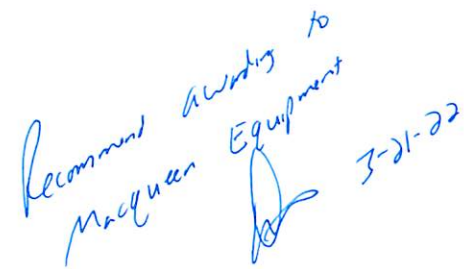 Recommend awarding to
Macqueen Equipment
3-21-22